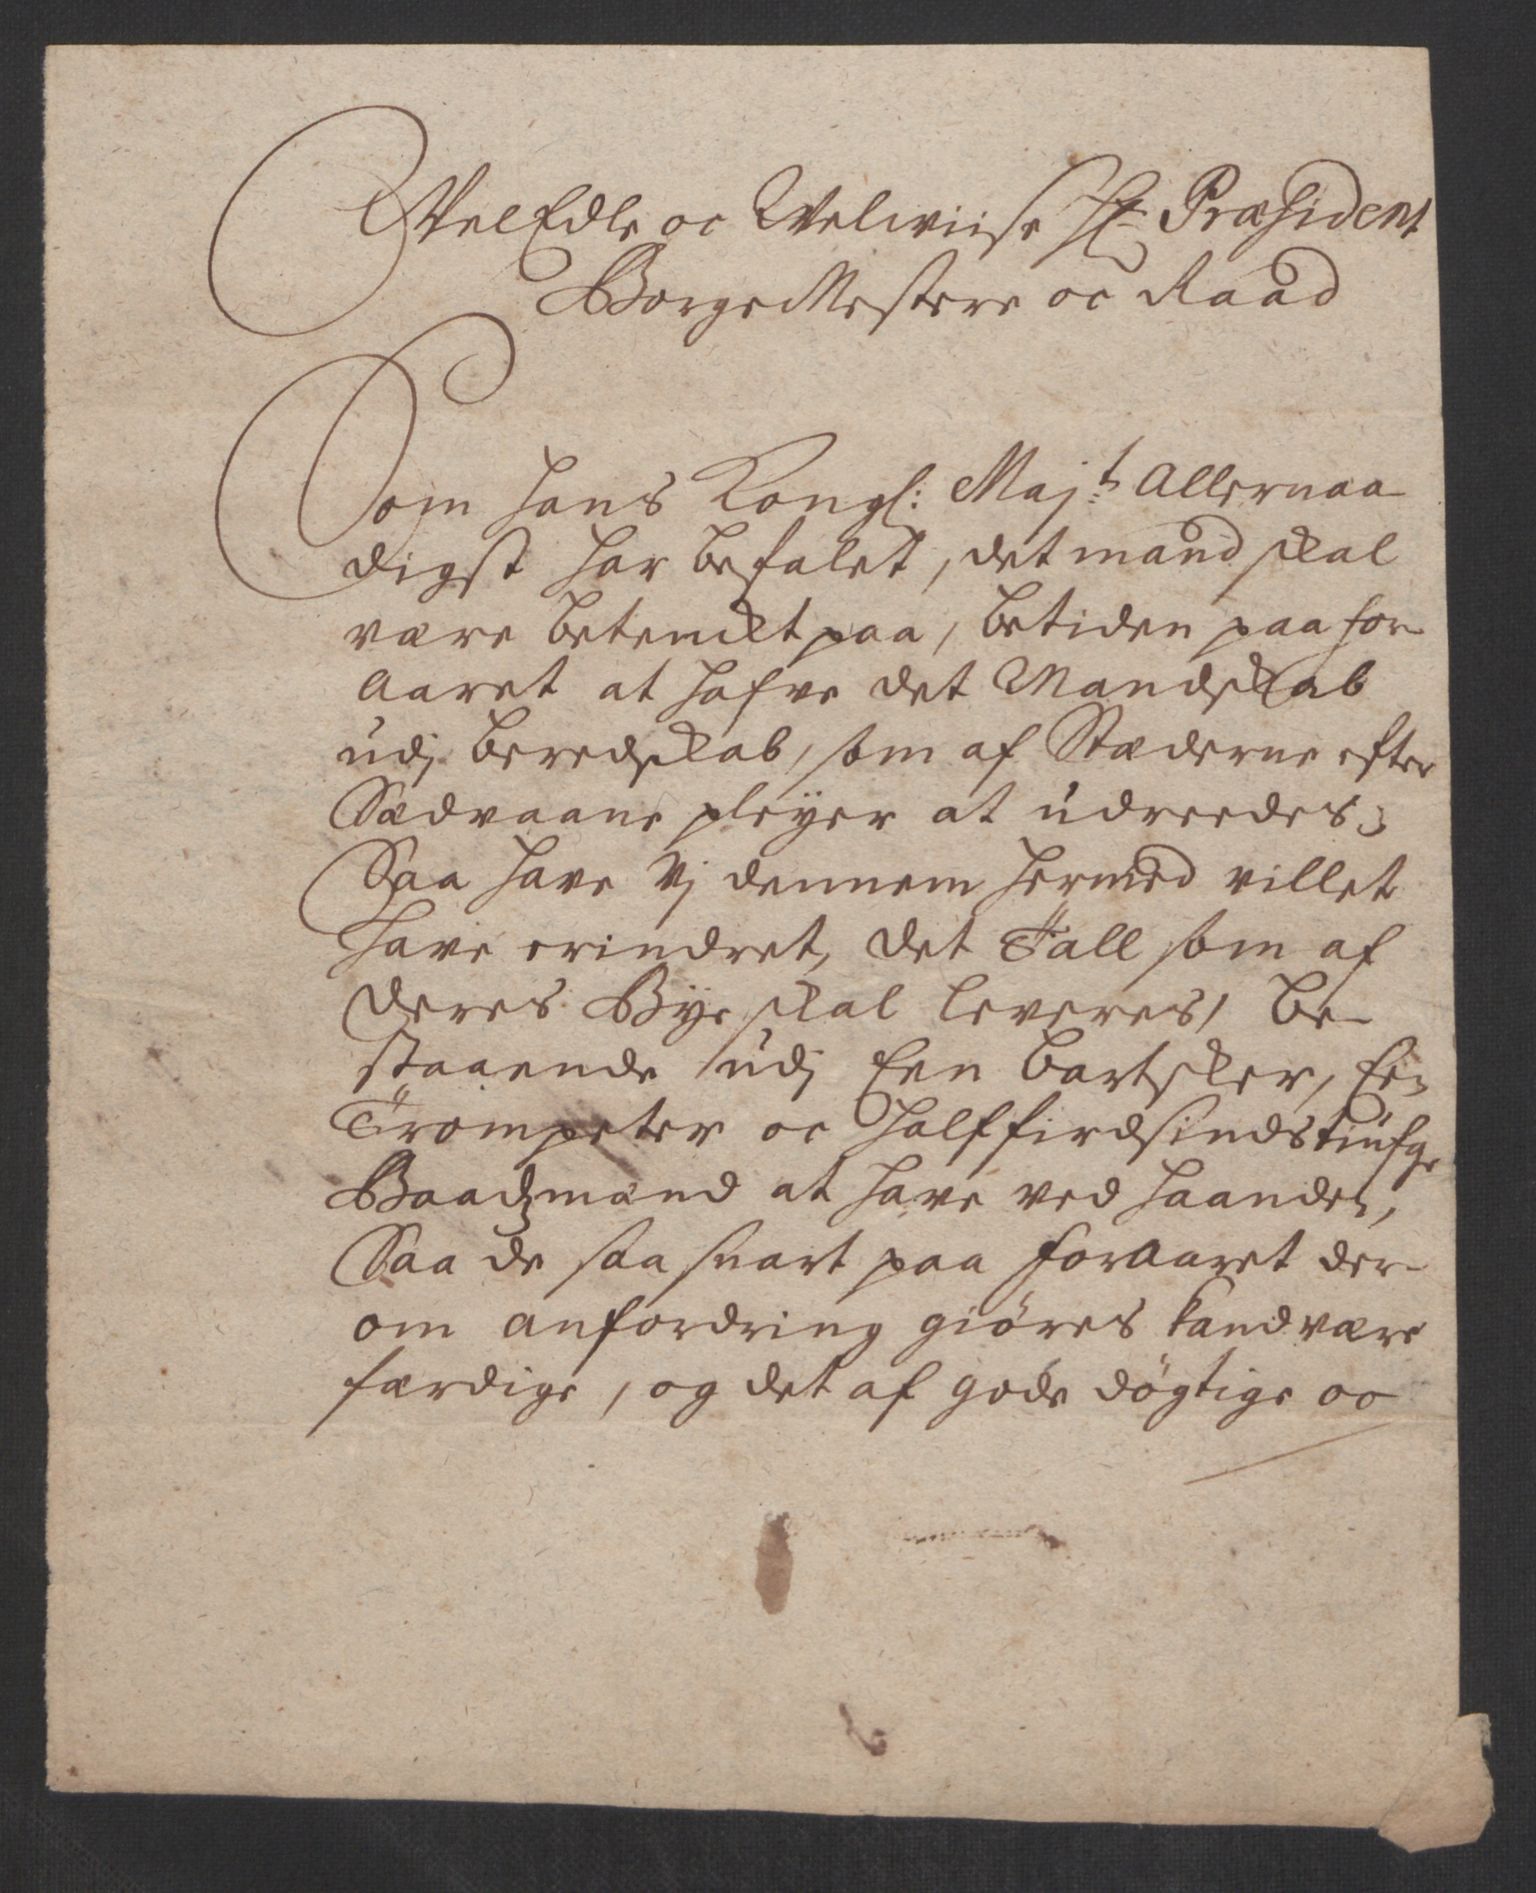 WelEdle oc Welwiise Hr Præsident
BorgeMestere oc Raad
Som hans Kongl: Majts Allernaa
digst har befalet, det mand skal
være betenckt paa, betiden paa for
Aaret at hafve det Mandskab
udj beredskab, som af Stæderne efter
Sædvaane pleÿer at udreedes;
Saa have Vj dennem hermed villet
have erindret, det Tall som af
deres Bÿe skal leveres, be-
staaende udj Een bartsker, Een
Trompeter oc halffierdsindstiufge
Baadzmænd at have ved haanden,
Saa de saa snart paa foraaret der-
om anfordring giöres kand være
færdige, og det af gode dögtige oc